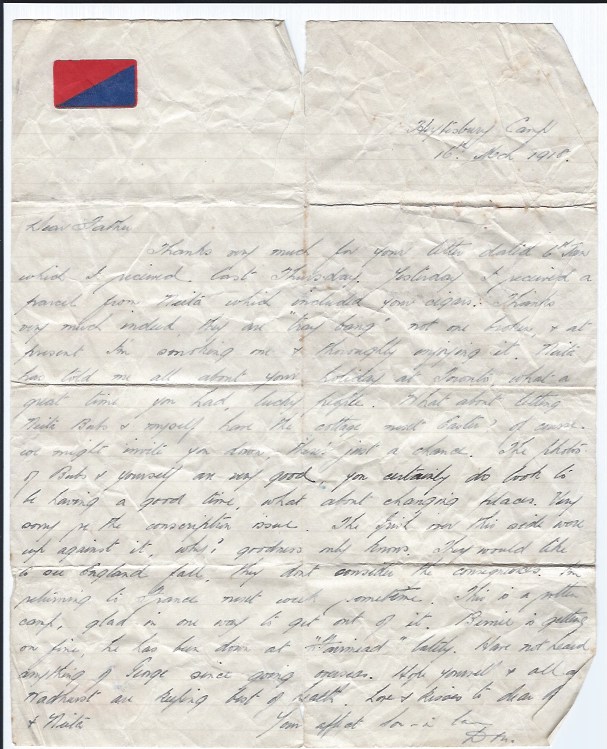 Heytesbury Camp
16th Mch 1918.
Dear Father
Thanks very much for your letter dated 6th Jan
which I received last Thursday. Yesterday I received a
parcel from Neita which included your cigars. Thanks
very much indeed they are "tray bong" not one broken, & at
present Im smoking one & thoroughly enjoying it. Neita
has told me all about your holiday at Sorrento, what a
great time you had, lucky people. What about letting
Neita Bubs & myself have the cottage next Easter, of course
we might invite you down theres just a chance. The photos
of Bubs & yourself are very good, you certainly do look to
be having a good time, what about changing places. Very
sorry re the conscription issue. The over this side were
up against it, why? goodness only knows. They would like
to see England fall, they dont consider the consequences. Im
returning to France next week sometime. This is a rotten
camp, glad in one way to get out of it. Bernie is getting
on fine, he has been down at "Fairmead" lately. Have not heard
anything of George since going overseas. Hope yourself & all at
Nadhurst are keeping best of health. Love & kisses to dear
& Neita
Your affect son-in law
Don.